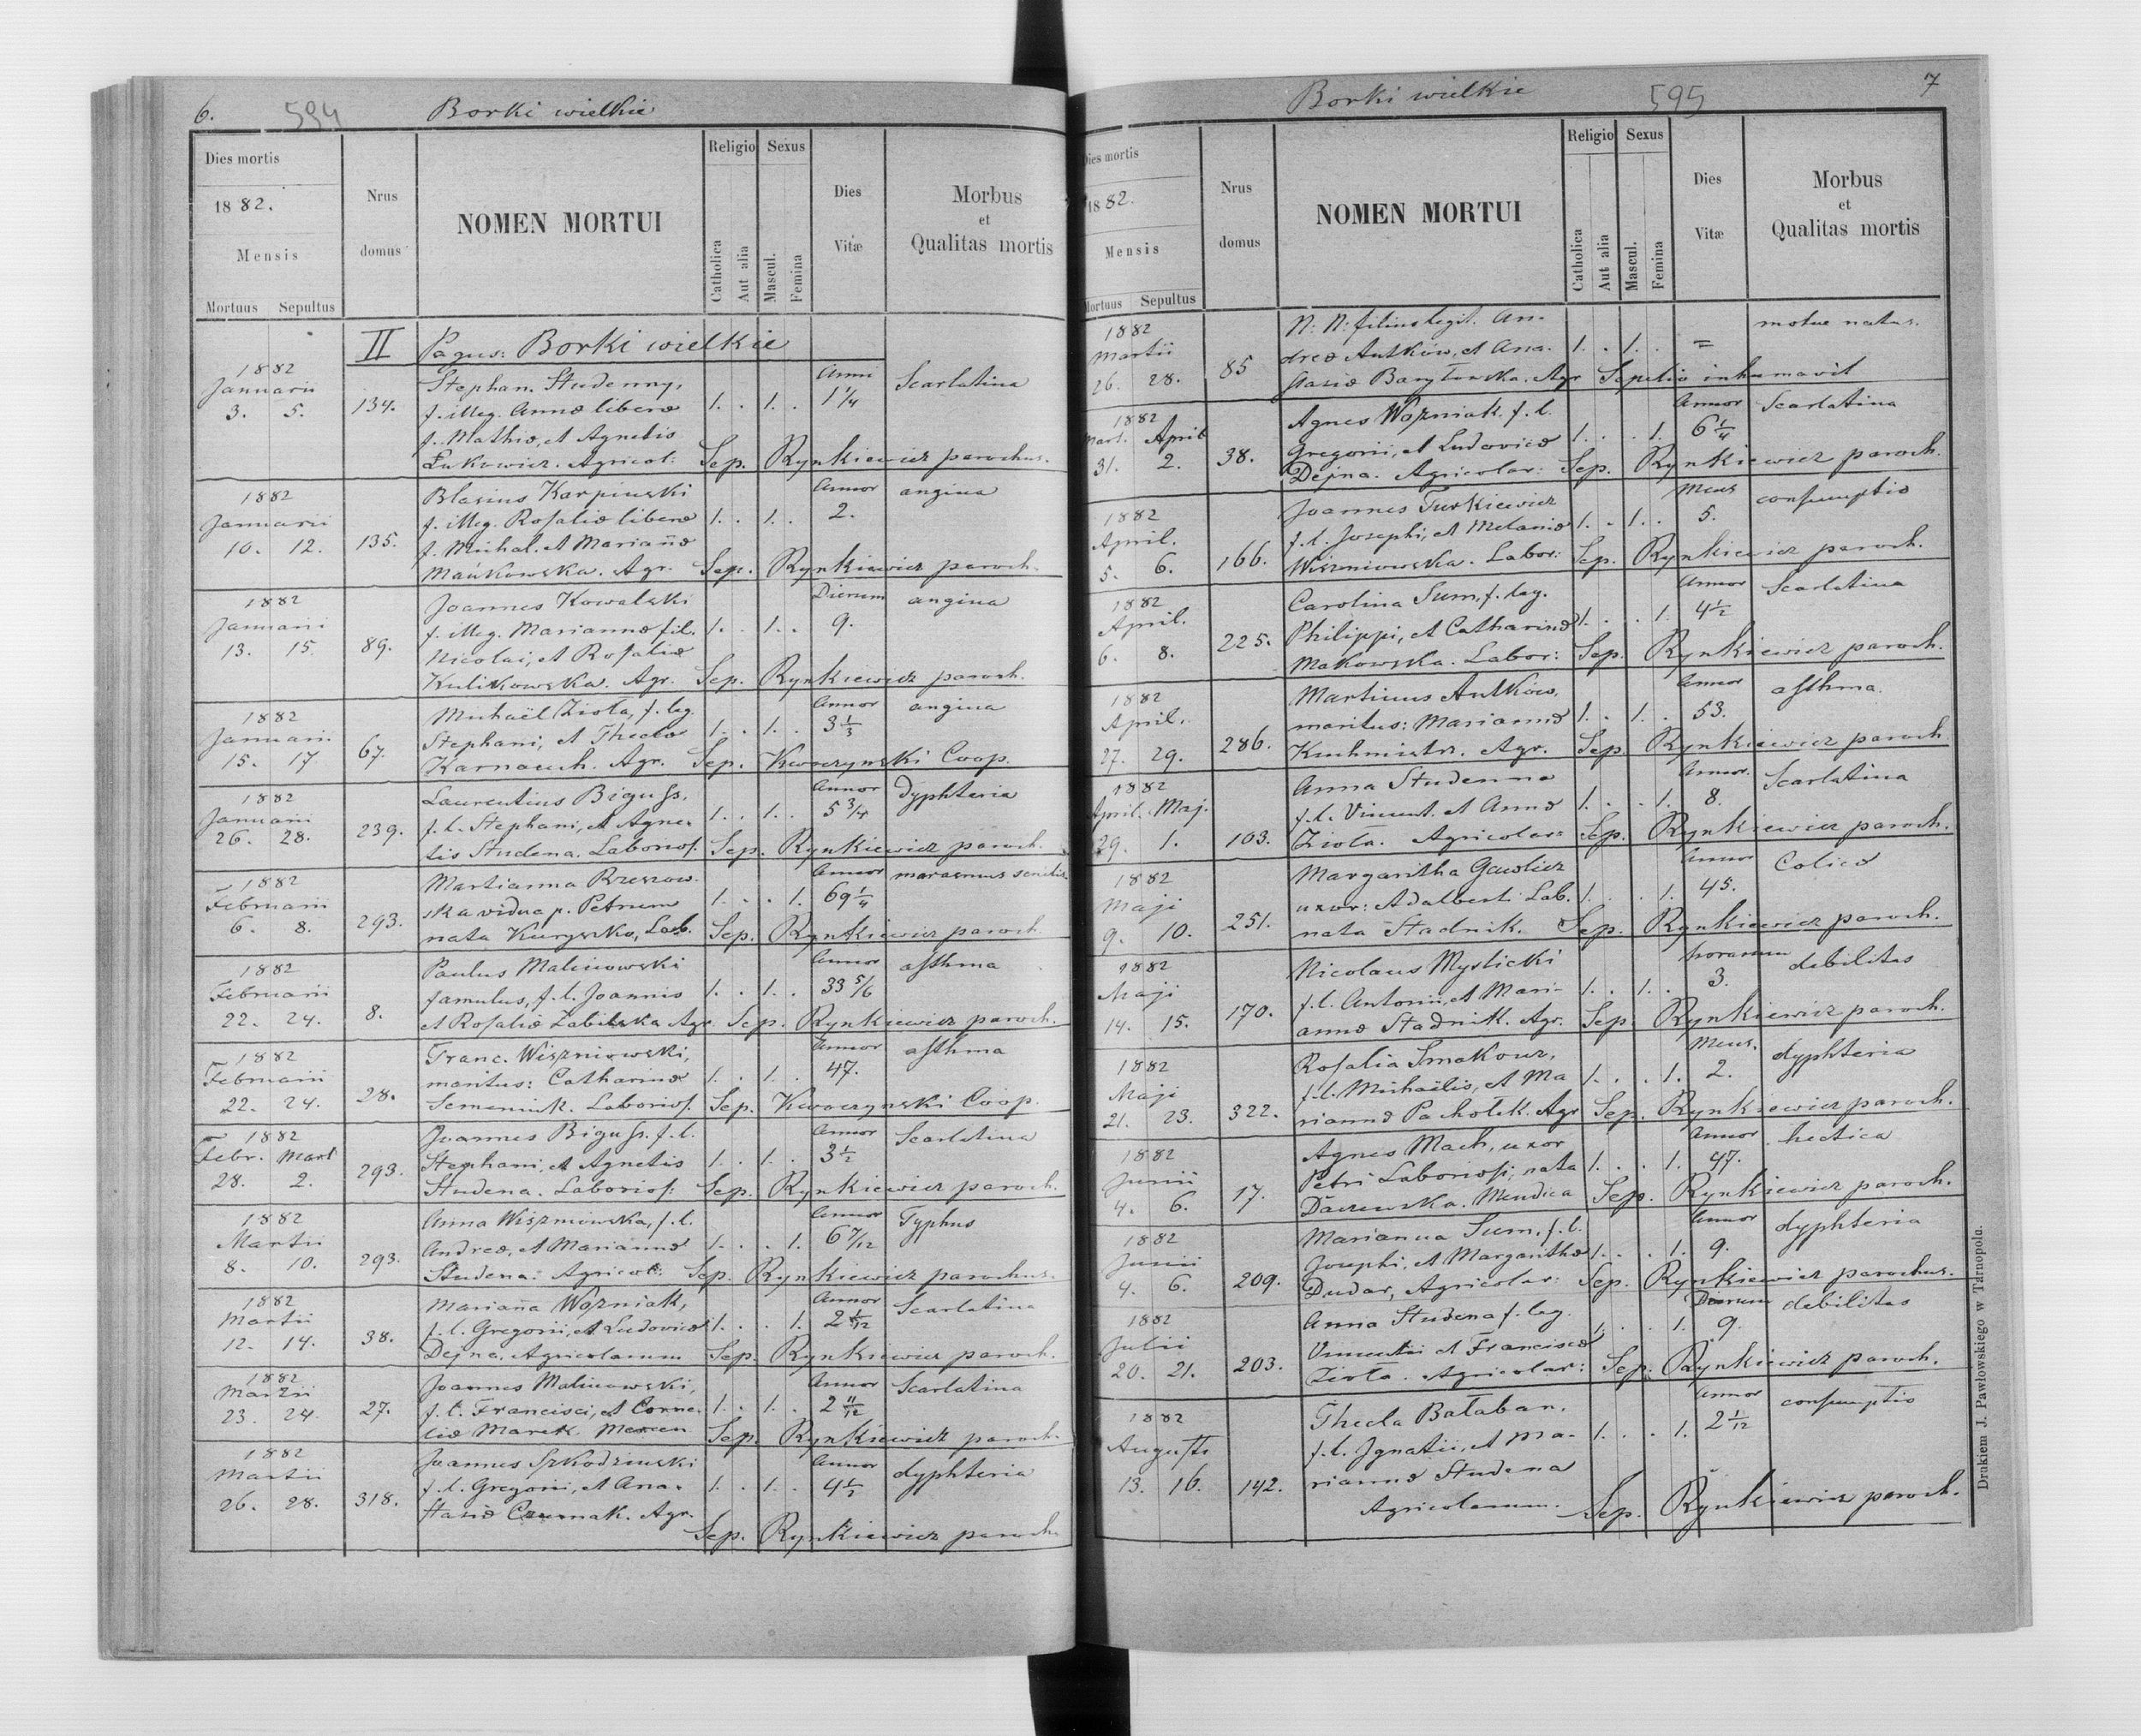 6. 594 Borki wielkie
Dies mortis
1882.
Mensis
Mortuus Sepultus
Nrus
domus
NOMEN MORTUI
Religio Sexus
Catholica
Aut alia
Mascul.
Femina
Dies
Vitæ
Morbus
et
Qualitas mortis
II Pagus: Borki wielkie
1882
Januarii
3. 5. 134.
Stephan. Studenny,
f. illeg. Annæ liberæ
f. Mathiæ, et Agnetis
Łukowicz. Agricol:
1. . 1. . Anni
1 1/4
Scarlatina
Sep. Rynkiewicz parochus.
1882
Januarii
10. 12. 135.
Blasius Karpinski
f. illeg. Rosaliæ liberæ
f. Michal. et Mariañæ
Mańkowska. Agr.
1. . 1. . Annor
2.
angina
Sep. Rynkiewicz paroch.
1882
Januarii
13. 15. 89.
Joannes Kowalski
f. illeg. Mariannæ fil.
Nicolai, et Rosaliæ
Kulikowska. Agr.
1. . 1. . Dierum
9.
angina
Sep. Rynkiewicz paroch.
1882
Januarii
15. 17 67.
Michaël Ziota, f. leg.
Stephani, et Theclæ
Karnauch. Agr.
1. . 1. . Annor
3 1/3
angina
Sep. Kwoczynski Coop.
1882
Januarii
26. 28. 239.
Laurentius Biguss,
f. l. Stephani, et Agne-
tis Studena. Laborios.
1. . 1. . Annor
5 3/4
dyphteria
Sep. Rynkiewicz paroch.
1882
Februarii
6. 8. 293.
Martianna Rzeszow-
ska vidua p. Petrum
nata Kuryszko, Lab.
1. . . 1. Annor
69 1/4
marasmus senilis
Sep. Rynkiewicz paroch.
1882
Februarii
22. 24. 8.
Paulus Malinowski
famulus, f. l. Joannis
et Rosaliæ Zabilska Agr.
1. . 1. . Annor
33 5/6
asthma
Sep. Rynkiewicz paroch.
1882
Februarii
22. 24. 28.
Franc. Wiszniowski,
maritus: Catharinæ
Semeniuk. Laborios.
1. . 1. . Annor
47.
asthma
Sep. Kwoczynski Coop.
1882
Febr. Mart
28. 2. 293.
Joannes Biguss. f. l.
Stephani, et Agnetis
Studena. Laborios:
1. . 1. . Annor
3 1/2
Scarlatina
Sep. Rynkiewicz paroch.
1882
Martii
8. 10. 293.
Anna Wiszniowska, f. l.
Andreæ, et Mariannæ
Studena: Agricol:
1. . . 1. Annor
6 7/12
Typhus
Sep. Rynkiewicz parochus.
1882
Martii
12. 14. 38.
Mariaña Wozniak,
f. l. Gregorii, et Ludovicæ
Dejna. Agricolarum
1. . . 1. Annor
Scarlatina
Sep. Rynkiewicz paroch.
1882
Martii
23. 24. 27.
Joannes Malinowski,
f. l. Francisci, et Corne-
liæ Marek
1. . 1. . Annor
2 11/12
Scarlatina
Sep. Rynkiewicz paroch.
1882
Martii
26. 28. 318.
Joannes Szkodzinski
f. l. Gregorii, et Ana-
stasiæ Czumak. Agr.
1. . 1. . Annor
4 1/2
dyphteria
Sep. Rynkiewicz paroch.
Borki wielkie 595 7
Dies mortis
1882.
Mensis
Mortuus Sepultus
Nrus
domus
NOMEN MORTUI
Religio Sexus
Catholica
Aut alia
Mascul.
Femina
Dies
Vitæ
Morbus
et
Qualitas mortis
1882
Martii
26. 28. 85
N: N: filius legit. An-
dreæ Antków, et Ana-
stasiæ Barytowska. Agr
1. . 1. . =
motue natus.
Sepelio inhumavit
1882
Mart. April
31. 2. 38.
Agnes Wozniak. f. l.
Gregorii, et Ludovicæ
Dejna. Agricolar:
1. . . 1. Annor
6 1/4
Scarlatina
Sep. Rynkiewicz paroch.
1882
April.
5. 6. 166.
Joannes Turkiewicz
f. l. Josephi, et Melaniæ
Wiszniowska. Labor:
1. . 1. . Mens
5.
consumptio
Sep. Rynkiewicz paroch.
1882
April.
6. 8. 225.
Carolina Sum, f. leg.
Philippi, et Catharinæ
Makowska. Labor:
1. . . 1. Annor
4 1/2
Scarlatina
Sep. Rynkiewicz paroch.
1882
April.
27. 29. 286.
Martinus Antków,
maritus: Mariannæ
Kuchmistr. Agr.
1. . 1. . Annor
53.
asthma.
Sep. Rynkiewicz paroch
1882
April. Maj.
29. 1. 103.
Anna Studenna
f. l. Vincent. et Annæ
Ziota. Agricolar:
1. . . 1. Annor.
8.
Scarlatina
Sep. Rynkiewicz paroch.
1882
Maji
9. 10. 251.
Margaritha Gawlicz
uxor: Adalberti Lab.
nata Stadnik.
1. . . 1. Annor
45.
Colica
Sep. Rynkiewicz paroch.
1882
Maji
14. 15. 170.
Nicolaus Myslicki
f. l. Antonii, et Mari-
annæ Stadnik. Agr.
1. . 1. . horarum
3.
debilitas
Sep. Rynkiewicz paroch.
1882
Maji
21. 23. 322.
Rosalia Smakouz,
f. l. Michaëlis, et Ma
riannæ Pachołek. Agr
1. . . 1. Mens.
2.
dyphteria
Sep. Rynkiewicz paroch.
1882
Junii
4. 6. 17.
Agnes Mach, uxor
Petri Laboriosi; nata
Daczewska. Mendica
1. . . 1. Annor
47.
hectica
Sep. Rynkiewicz paroch.
1882
Junii
4. 6. 209.
Marianna Sum, f. l.
Josephi, et Margarithæ
Dudar, Agricolar:
1. . . 1. Annor
9.
dyphteria
Sep. Rynkiewicz parochus.
1882
Julii
20. 21. 203.
Anna Studena f. leg.
Vincentii et Franciscæ
Ziota. Agricolar:
1. . . 1. Dierum
9.
debilitas
Sep. Rynkiewicz paroch.
1882
Augusti
13. 16. 142.
Thecla Bałaban.
f. l. Ignatii, et Ma-
riannæ Studena
Agricolarum.
1. . . 1. Annor
2 1/12
consumptio
Sep. Rynkiewicz paroch.
Drukiem J. Pawłowskiego w Tarnopolu.